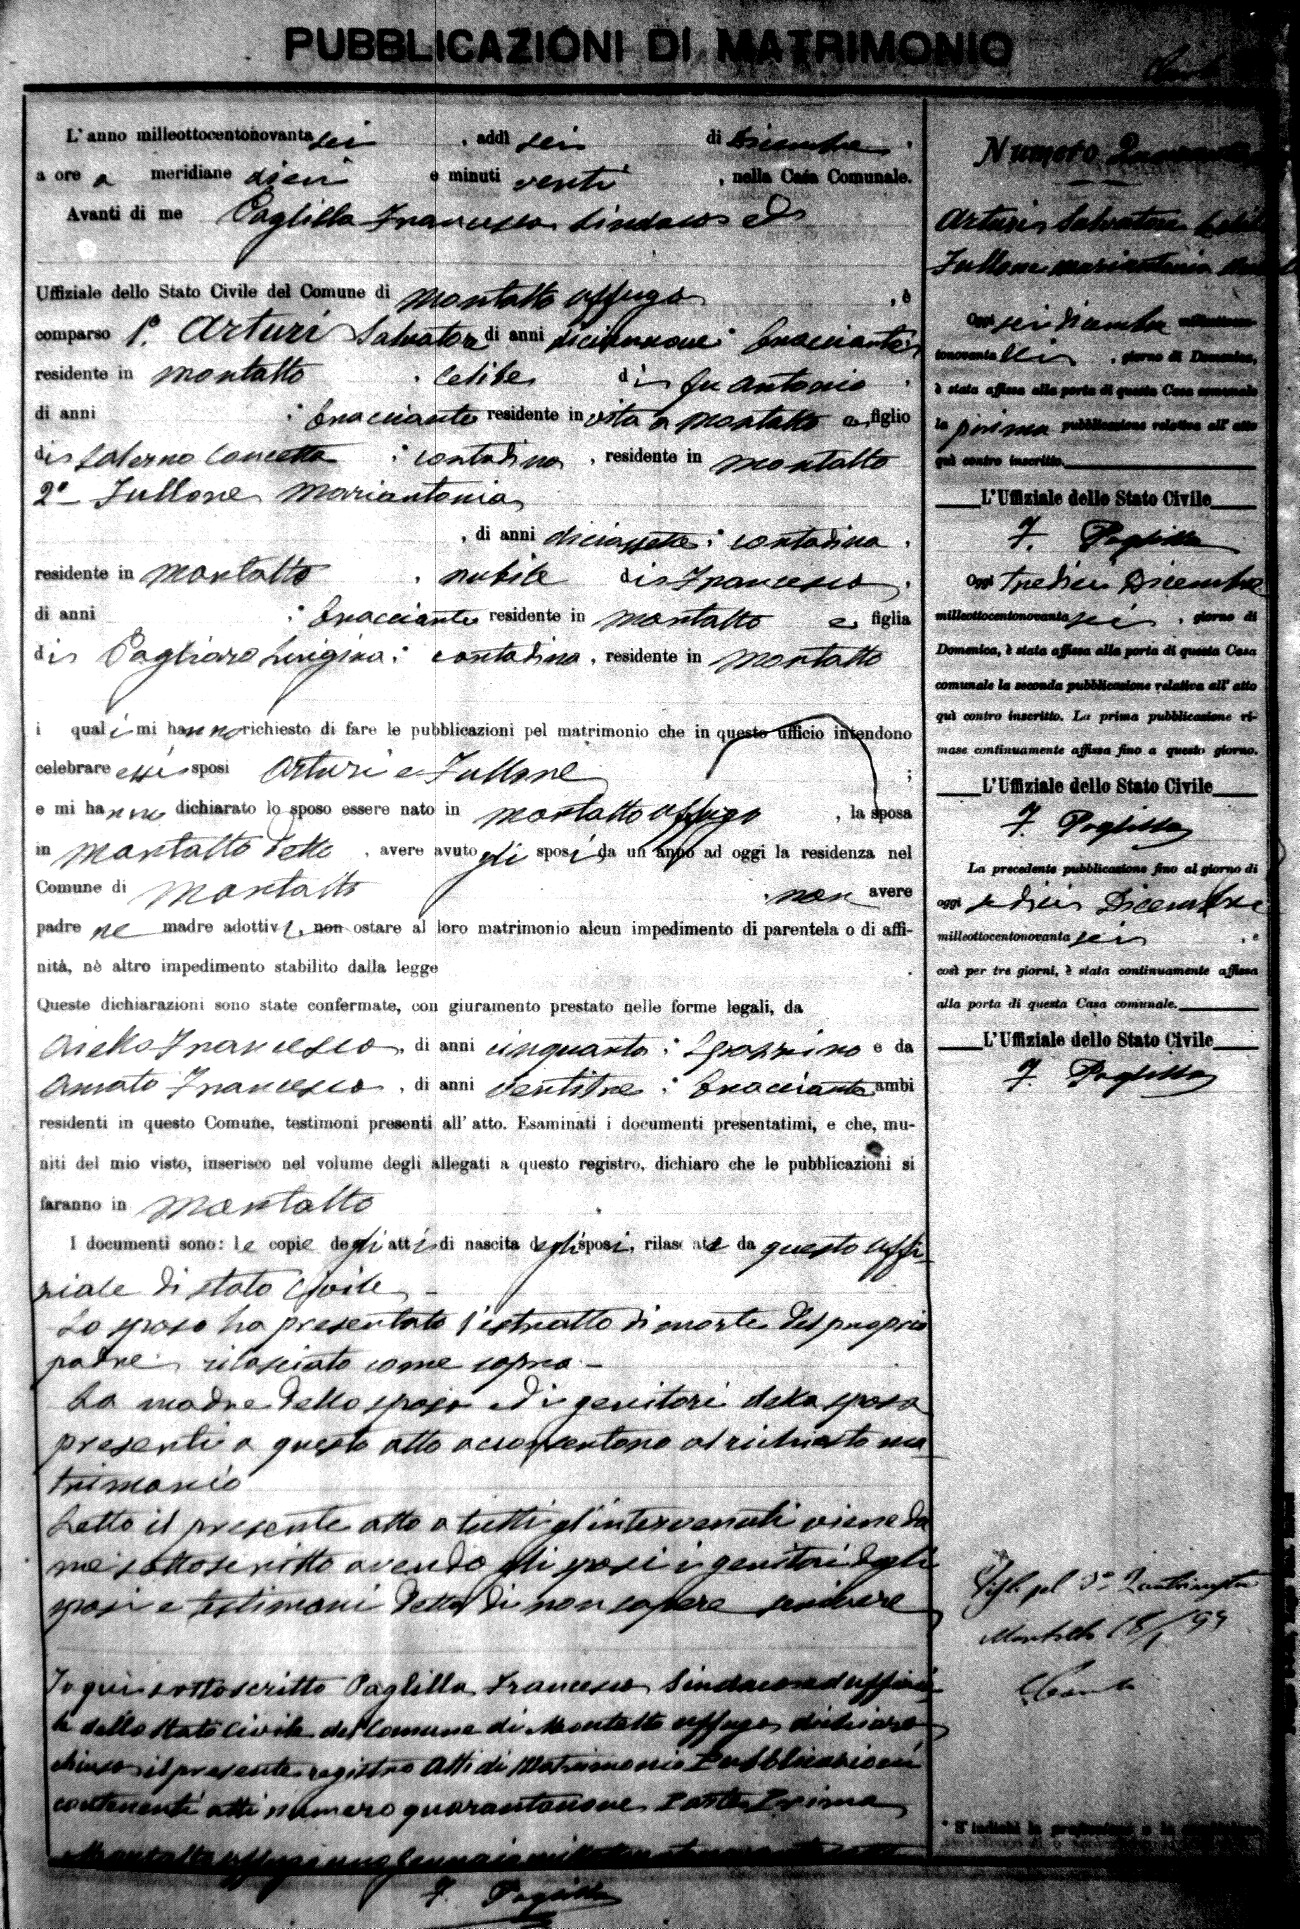 PUBBLICAZIONI DI MATRIMONIO
L'anno milleottocentonovanta sei, addì sei di Dicembre,
a ore a meridiane dieci e minuti venti, nella Casa Comunale.
Avanti di me Paglilla Francesco Sindaco ed
Uffiziale dello Stato Civile del Comune di Montalto Uffugo, è
comparso 1.° Arturi Salvatore di anni diciannove: bracciante,
residente in Montalto, celibe di fu Antonio,
di anni : bracciante residente in vita a Montalto e figlio
di Salerno Concetta : contadina, residente in Montalto
2° Fullone Mariantonia
, di anni diciassette: contadina,
residente in Montalto, nubile di Francesco,
di anni : bracciante residente in Montalto e figlia
di Pagliaro Luigina: contadina, residente in Montalto
i quali mi hanno richiesto di fare le pubblicazioni pel matrimonio che in questo ufficio intendono
celebrare essi sposi Arturi e Fullone ;
e mi hanno dichiarato lo sposo essere nato in Montalto Uffugo, la sposa
in Montalto detto, avere avuto gli sposi da un anno ad oggi la residenza nel
Comune di Montalto, non avere
padre ne madre adottivi, non ostare al loro matrimonio alcun impedimento di parentela o di affi-
nità, nè altro impedimento stabilito dalla legge .
Queste dichiarazioni sono state confermate, con giuramento prestato nelle forme legali, da
Aiello Francesco, di anni cinquanta: spazzino e da
Amato Francesco, di anni ventitre: bracciante ambi
residenti in questo Comune, testimoni presenti all'atto. Esaminati i documenti presentatimi, e che, mu-
niti del mio visto, inserisco nel volume degli allegati a questo registro, dichiaro che le pubblicazioni si
faranno in Montalto
I documenti sono: le copie degli atti di nascita degli sposi, rilasciate da questo uffi-
ziale di stato civile -
Lo sposo ha presentato l'estratto di morte del proprio
padre, rilasciato come sopra -
La madre dello sposo ed i genitori della sposa
presenti a questo atto acconsentono al richiesto ma
trimonio
Letto il presente atto a tutti gl'intervenuti viene da
me sottoscritto avendo gli sposi i genitori degli
sposi e testimoni detto di non sapere scrivere
Io qui sottoscritto Paglilla Francesco Sindaco ed uffizia
le dello stato civile del Comune di Montalto Uffugo dichiaro
chiuso il presente registro Atti di Matrimonio Pubblicazioni
contenenti atti numero quarantanove Parte Prima
Montalto Uffugo
F. Paglilla
Numero
Arturi Salvatore
Fullone Mariantonia
Oggi sei dicembre milleottocen-
tonovanta sei, giorno di Domenica,
è stata affissa alla porta di questa Casa comunale
la prima pubblicazione relativa all'atto
quì contro inscritto.
L'Uffiziale dello Stato Civile
F. Paglilla
Oggi tredici Dicembre
milleottocentonovanta sei, giorno di
Domenica, è stata affissa alla porta di questa Casa
comunale la seconda pubblicazione relativa all'atto
quì contro inscritto. La prima pubblicazione ri-
mase continuamente affissa fino a questo giorno.
L'Uffiziale dello Stato Civile
F. Paglilla
La precedente pubblicazione fino al giorno di
oggi sedici Dicembre
milleottocentonovanta sei, e
così per tre giorni, è stata continuamente affissa
alla porta di questa Casa comunale.
L'Uffiziale dello Stato Civile
F. Paglilla
Montalto
* S'indichi la professione o la condizione